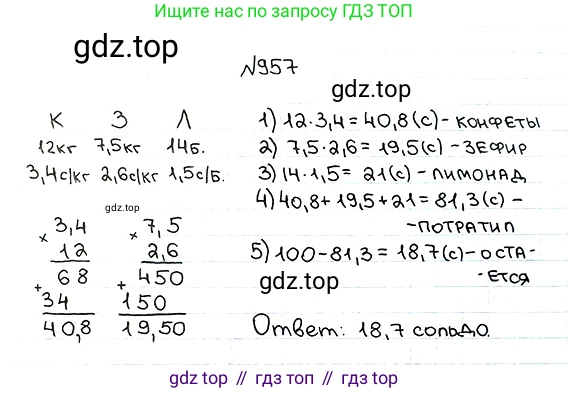 Ищите по запросу ГДЗ ТОП
gdz.top
№957
gdz.top
К З Л
12кг 7,5кг 14б.
3,4с/кг 2,6с/кг 1,5с/б.
1) 12·3,4=40,8(с)-КОНФЕТЫ
2) 7,5·2,6=19,5(с)-ЗЕФИР
3) 14·1,5= 21(с)-ЛИМОНАД
4) 40,8+19,5+21=81,3(с)-
-ПОТРАТИЛ
5) 100-81,3=18,7(с)-ОСТА-
-ЕТСЯ
gdz.top
gdz.top
× 3,4
12
68
+
34
40,8
× 7,5
2,6
450
+
150
19,50
Ответ: 18,7 сольдо.
gdz.top // гдз топ // гдз.топ